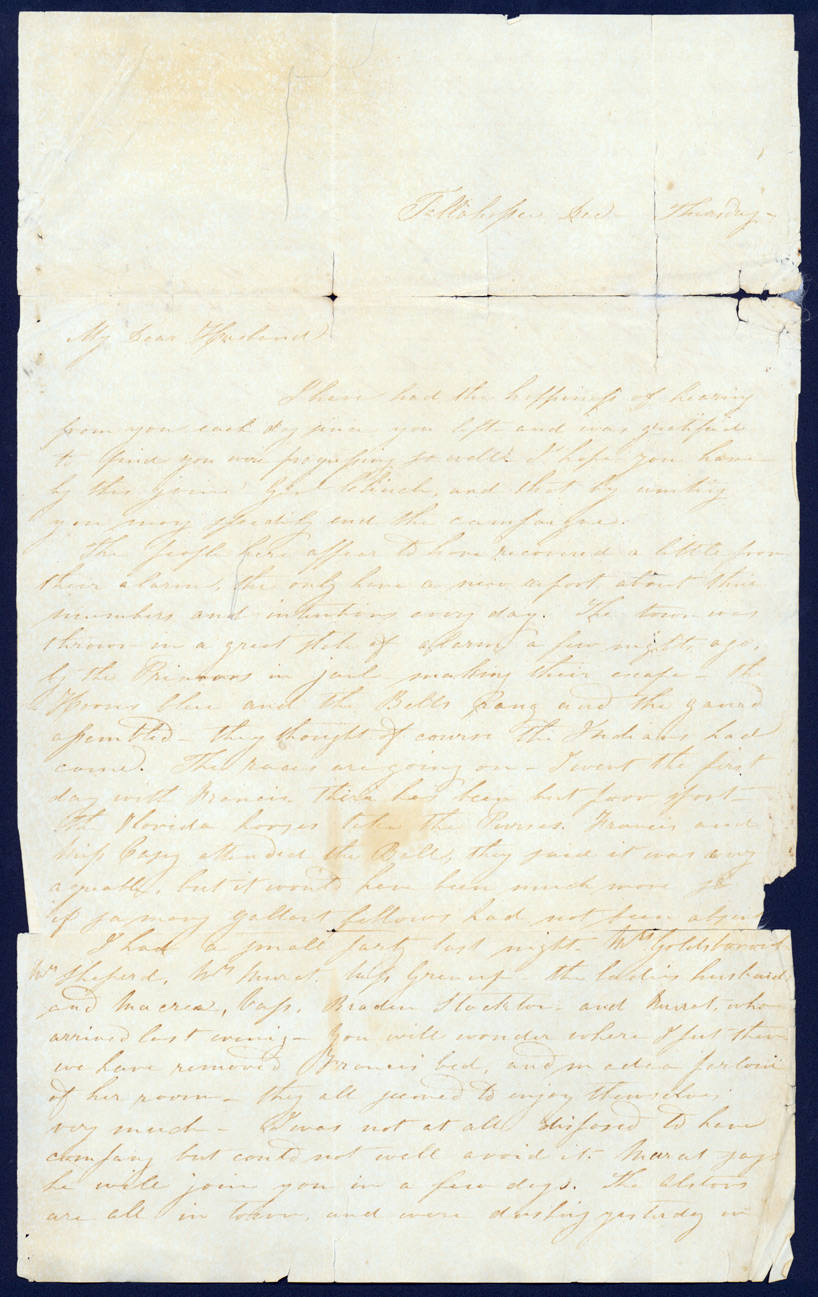 Tallahassee Dec - Thursday -
My Dear Husband
I have had the happiness of hearing
from you each day since you left and was gratified
to find you were progressing so well. I hope you have
by this joined Genl Clinch, and that by uniting
you may speedily end the campaigne.
The people here appear to have recovered a little from
their alarm, the only have a new report about their
numbers and intentions every day. The town was
thrown in a great state of alarm a few nights ago,
by the Prisoners in jail making their escape - the
Horns blue and the Bells Rang and the guard
assembled - they thought of course the Indians had
come. The races are going on - I went the first
day with Francis there has been but poor sport -
the Florida horses take the Purses. Francis and
Miss attended the Ball, they said it was very
agreable, but it would have been much more so
if so many gallant fellows had not been absent
I had a small party last night. Mrs Goldsborough
Mrs Sheperd, Mrs Murat. Miss - the ladies husband
and Macrea, Bradin Stockton - and Murat, who
arrived last evening - You will wonder where I put them
we have removed Francis' bed, and made a parlour
of her room - they all seemed to enjoy themselves
very much - I was not at all disposed to have
company but could not well avoid it. Murat says
he will join you in a few days. The Alstons
are all in town, and were dashing yesterday in